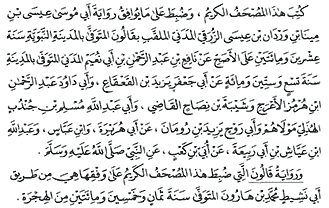 كُتِبَ هَذَا المُصْحَفُ الكَرِيمُ، وَضُبِطَ عَلَى مَا يُوَافِقُ رِوَايَةَ أَبِي مُوسَى عِيسَى بنِ
مِينَا بنِ وَرْدَانَ بنِ عِيسَى الزُّرَقِيِّ المَدَنِيِّ المُلَقَّبِ بِقَالُونَ المُتَوَفَّى بِالمَدِينَةِ النَّبَوِيَّةِ سَنَةَ
عِشْرِينَ وَمِائَتَيْنِ عَلَى الأَصَحِّ عَنْ نَافِعِ بنِ عَبْدِ الرَّحْمٰنِ بنِ أَبِي نُعَيْمٍ المَدَنِيِّ المُتَوَفَّى بِالمَدِينَةِ
سَنَةَ تِسْعٍ وَسِتِّينَ وَمِائَةٍ عَنْ أَبِي جَعْفَرٍ يَزِيدَ بنِ القَعْقَاعِ، وَأَبِي دَاوُدَ عَبْدِ الرَّحْمٰنِ
ابنِ هُرْمُزَ الأَعْرَجِ وَشَيْبَةَ بنِ نِصَاحٍ القَاضِي، وَأَبِي عَبْدِ اللهِ مُسْلِمِ بنِ جُنْدُبٍ
الهُذَلِيِّ مَوْلَاهُمْ وَأَبِي رَوْحٍ يَزِيدَ بنِ رُومَانَ، عَنْ أَبِي هُرَيْرَةَ، وَابنِ عَبَّاسٍ، وَعَبْدِ اللهِ
ابنِ عَيَّاشِ بنِ أَبِي رَبِيعَةَ، عَنْ أُبَيِّ بنِ كَعْبٍ، عَنِ النَّبِيِّ صَلَّى اللهُ عَلَيْهِ وَسَلَّمَ.
وَرِوَايَةُ قَالُونَ الَّتِي ضُبِطَ هَذَا المُصْحَفُ الكَرِيمُ عَلَى وَفْقِهَا هِيَ مِنْ طَرِيقِ
أَبِي نَشِيطٍ مُحَمَّدِ بنِ هَارُونَ المُتَوَفَّى سَنَةَ ثَمَانٍ وَخَمْسِينَ وَمِائَتَيْنِ مِنَ الهِجْرَةِ.